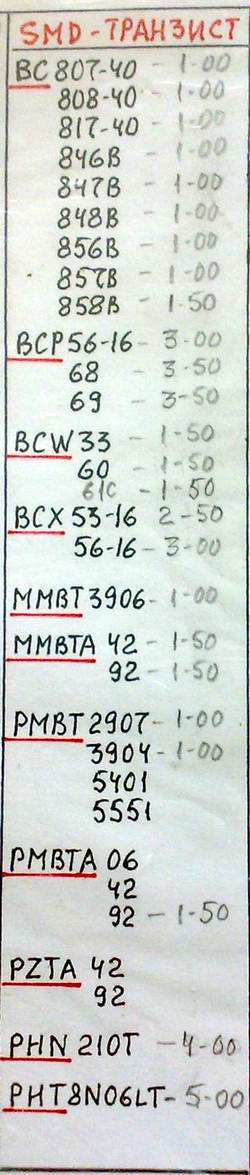 SMD-ТРАНЗИСТ
BC 807-40 - 1-00
808-40 - 1-00
817-40 - 1-00
846B - 1-00
847B - 1-00
848B - 1-00
856B - 1-00
857B - 1-00
858B - 1-50
BCP 56-16 - 3-00
68 - 3-50
69 - 3-50
BCW 33 - 1-50
60 - 1-50
61C - 1-50
BCX 53-16 2-50
56-16 - 3-00
MMBT 3906 - 1-00
MMBTA 42 - 1-50
92 - 1-50
PMBT 2907 - 1-00
3904 - 1-00
5401
5551
PMBTA 06
42
92 - 1-50
PZTA 42
92
PHN 210T - 4-00
PHT8N06LT - 5-00